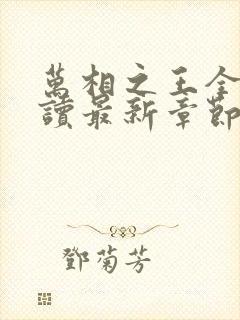 萬相之王全
讀最新章節
鄧菊芳